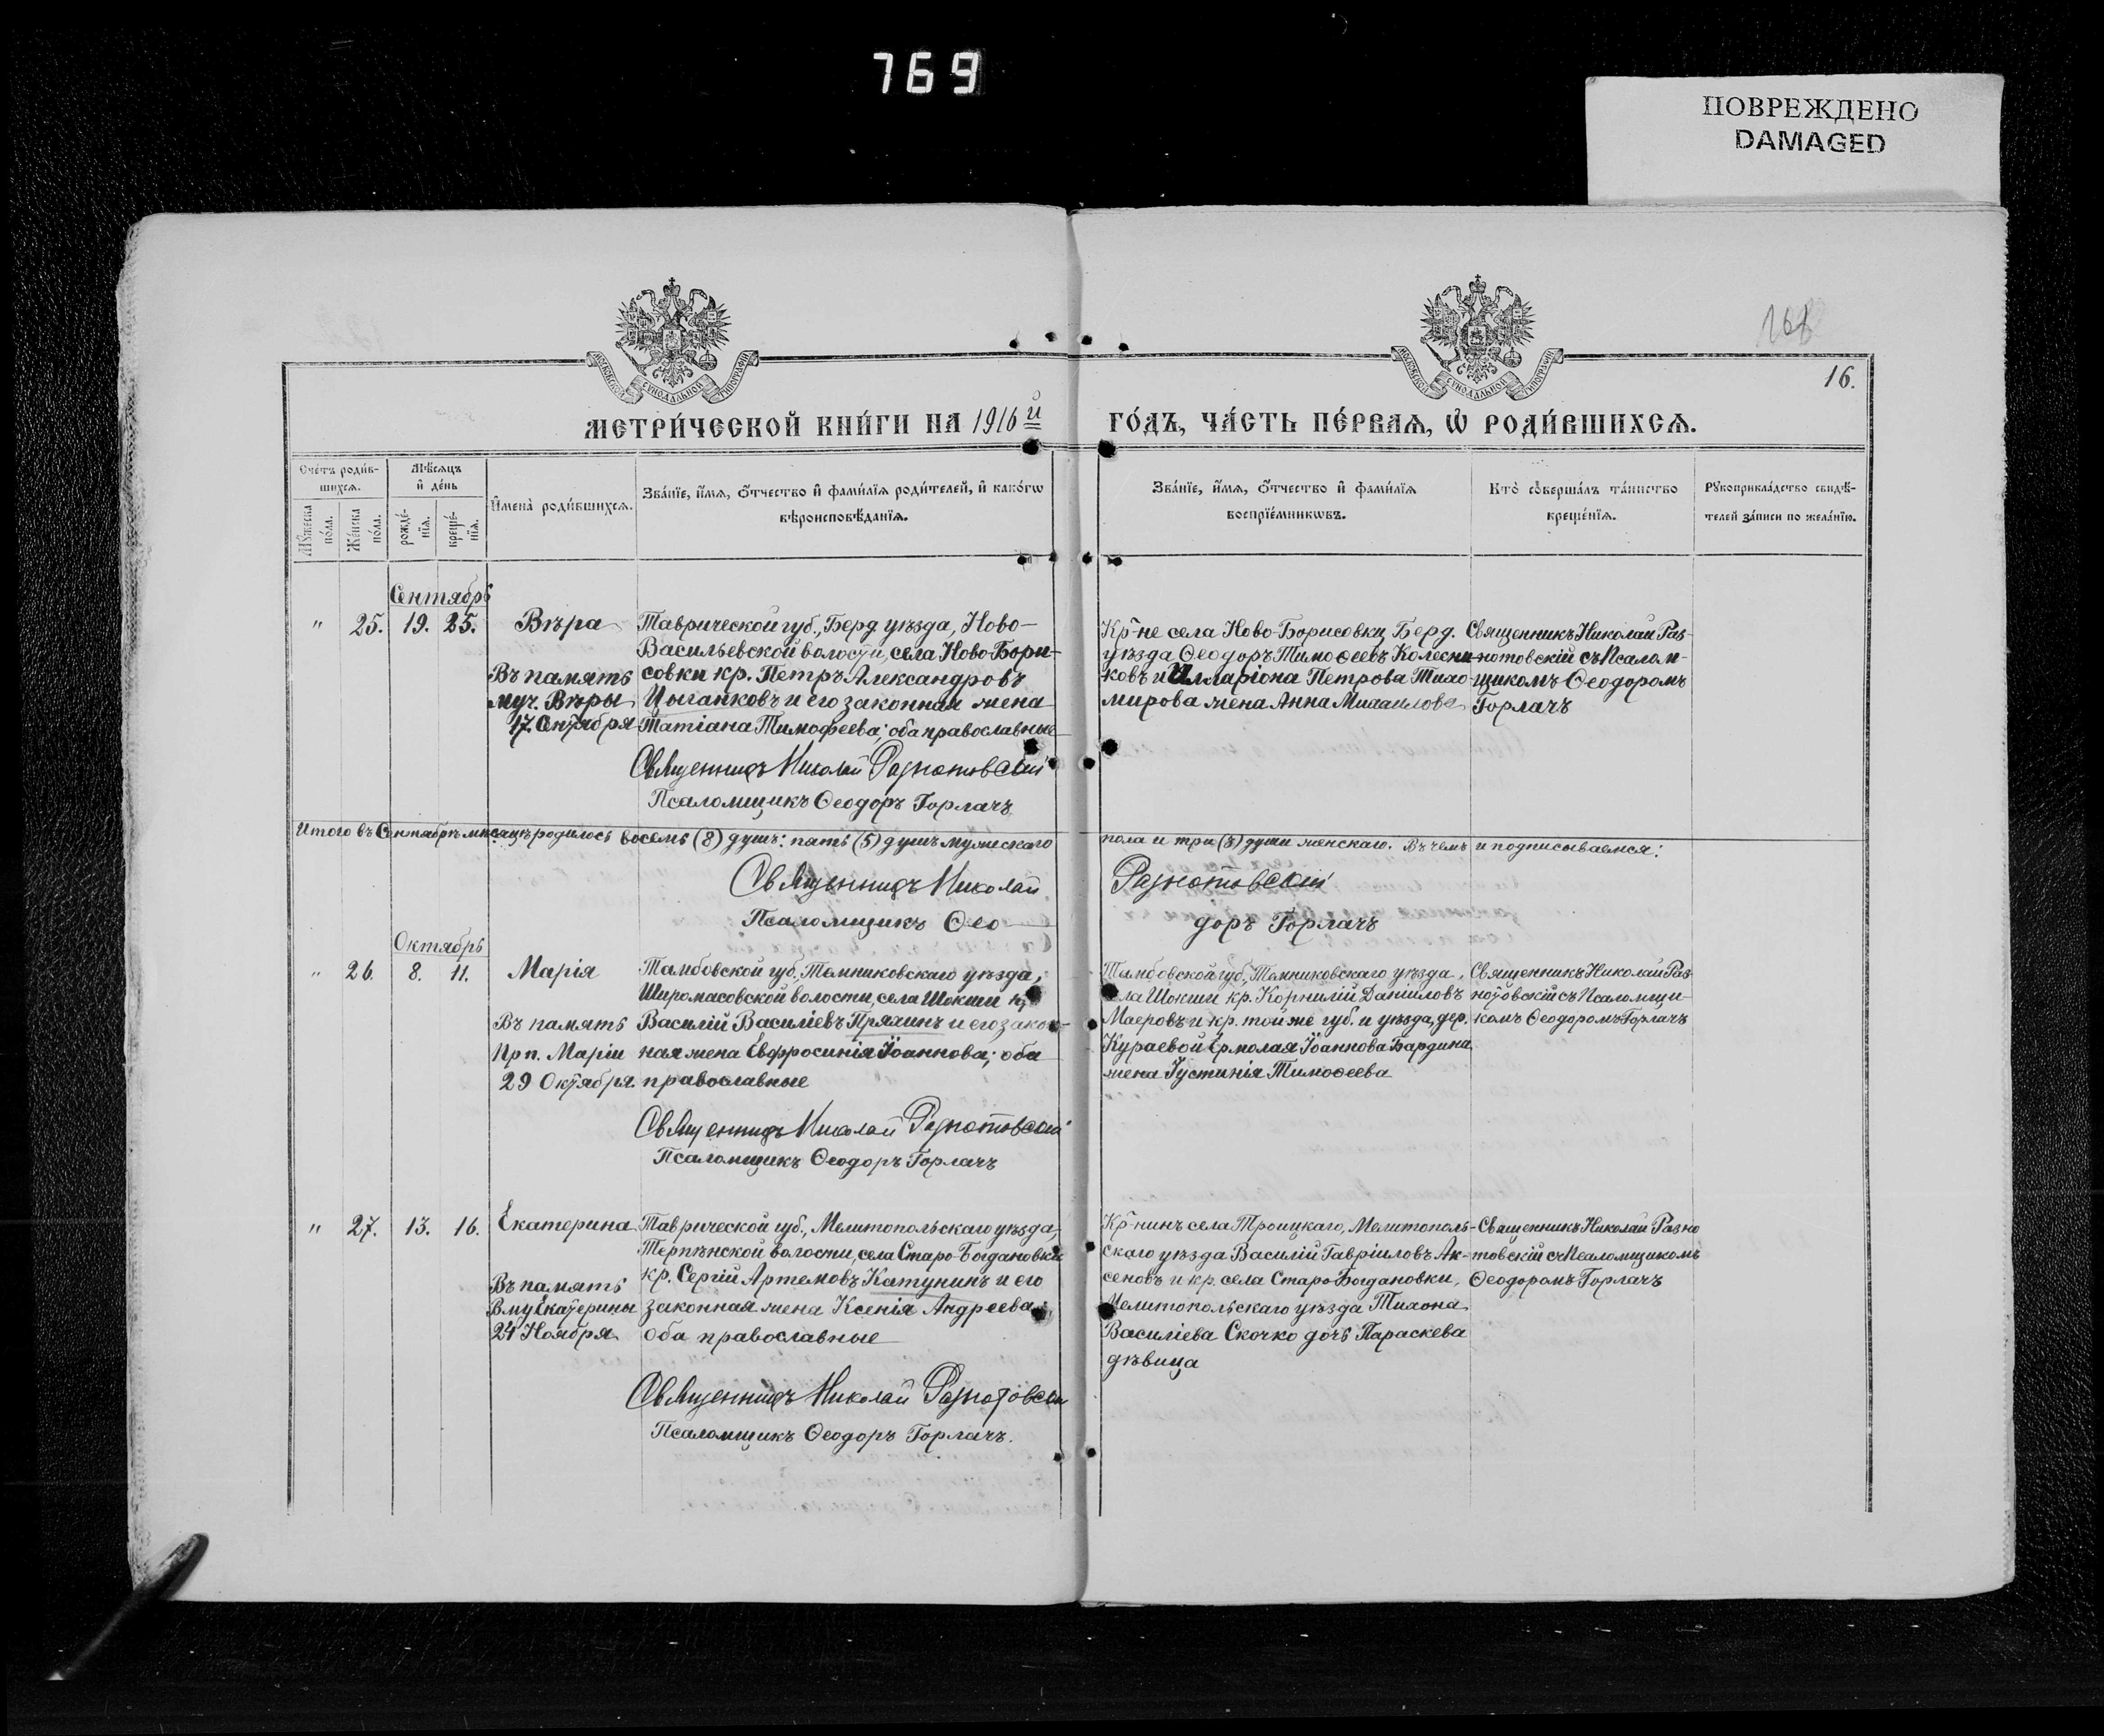 769
ПОВРЕЖДЕНО
DAMAGED
16.
МОСКОВСКОЙ СѴНОДАЛЬНОЙ ТИПОГРАФІИ
МОСКОВСКОЙ СѴНОДАЛЬНОЙ ТИПОГРАФІИ
МЕТРИ́ЧЕСКОЙ КНИ́ГИ НА 1916й
ГО́ДЪ, ЧА́СТЬ ПЕ́РВАѦ, Ѡ҆ РОДИ́ВШИХСѦ.
Сче́тъ роди́в-
шихсѧ.
Мꙋ́жеска по́ла.
Же́нска по́ла.
Мѣ́сѧцъ
и҆ де́нь
рожде́-нїѧ.
креще́-нїѧ.
И҆мена̀ роди́вшихсѧ.
Зва́нїе, и҆́мѧ, ѻ҆́тчество и҆ фами́лїѧ роди́телей, и҆ како́гѡ
вѣроисповѣ́данїѧ.
Зва́нїе, и҆́мѧ, ѻ҆́тчество и҆ фами́лїѧ
воспрїе́мникѡвъ.
Кто̀ соверша́лъ та́инство
креще́нїѧ.
Рꙋкоприкла́дство свидѣ́-
телей за́писи по жела́нїю.
Сентябрь
" 25. 19. 25. Вѣра
Въ память
муч. Вѣры
17. Сентября
Таврической губ., Берд. уѣзда, Ново-
Васильевской волости, села Ново-Бори-
совки кр. Петръ Александровъ
Цыганковъ и его законная жена
Татіана Тимофеева; оба православные
Священникъ Николай Разнотовскій
Псаломщикъ Ѳеодоръ Горлачъ
Кр-не села Ново-Борисовки, Берд.
уѣзда Ѳеодоръ Тимоѳеевъ Колесни-
ковъ и Илларіона Петрова Тихо-
мирова жена Анна Михаилова
Священникъ Николай Раз-
нотовскій съ Псалом-
щикомъ Ѳеодоромъ
Горлачъ
Итого въ Сентябрѣ мѣсяцѣ родилось восемь (8) душъ: пять (5) душъ мужескаго
пола и три (3) души женскаго. Въ чемъ и подписываемся:
Священникъ Николай Разнотовскій
Псаломщикъ Ѳеодоръ Горлачъ
Октябрь
" 26. 8. 11. Марія
Въ память
Прп. Маріи
29 Октября.
Тамбовской губ., Темниковскаго уѣзда,
Широмасовской волости, села Шокши кр.
Василій Василіевъ Пряхинъ и его закон-
ная жена Евфросинія Іоаннова; оба
православные
Священникъ Николай Разнотовскій
Псаломщикъ Ѳеодоръ Горлачъ
Тамбовской губ., Темниковскаго уѣзда,
села Шокши кр. Корнилій Даніиловъ
Маеровъ и кр. той же губ. и уѣзда, дер.
Кураевой Ермолая Іоаннова Бардина
жена Іустинія Тимоѳеева
Священникъ Николай Раз-
нотовскій съ Псаломщи-
комъ Ѳеодоромъ Горлачъ
" 27. 13. 16. Екатерина
Въ память
Вму Екатерины
24 Ноября
Таврической губ., Мелитопольскаго уѣзда,
Терпѣнской волости, села Старо-Богдановки
кр. Сергій Артемовъ Катунинъ и его
законная жена Ксенія Андреева;
оба православные
Священникъ Николай Разнотовскій
Псаломщикъ Ѳеодоръ Горлачъ.
Кр-нинъ села Троицкаго, Мелитополь-
скаго уѣзда Василій Гавріиловъ Ак-
сеновъ и кр. села Старо-Богдановки,
Мелитопольскаго уѣзда Тихона
Василіева Скочко дочь Параскева
дѣвица
Священникъ Николай Разно
товскій съ Псаломщикомъ
Ѳеодоромъ Горлачъ